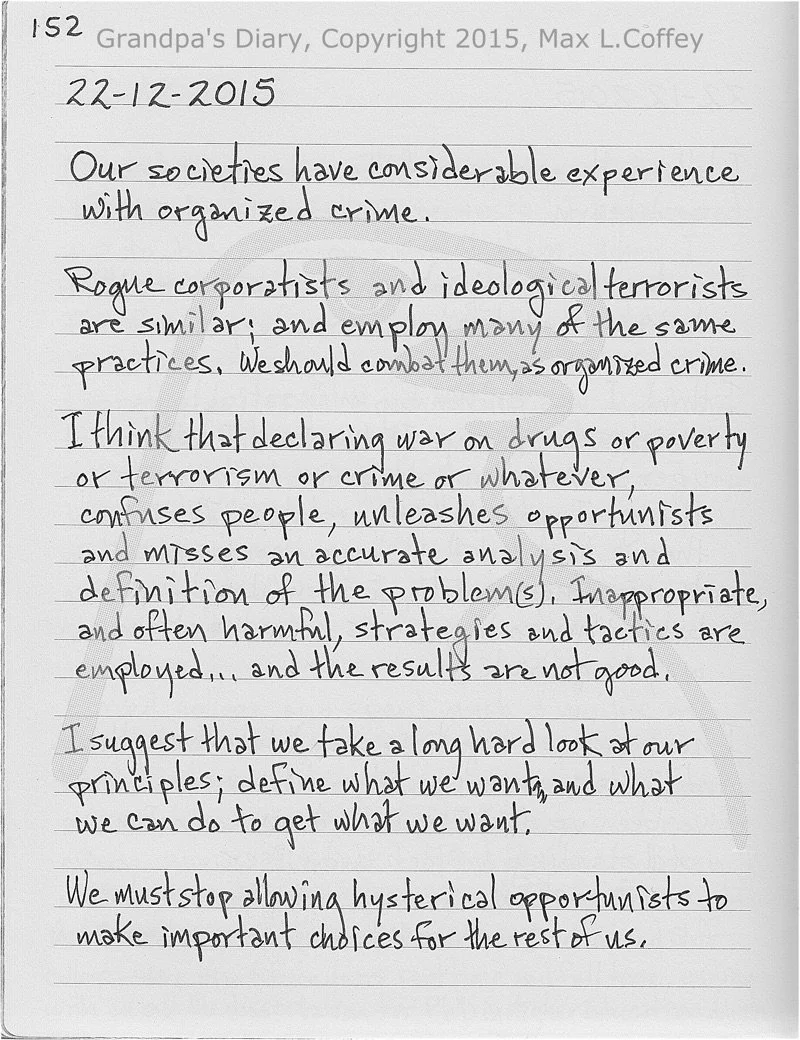 152
Grandpa's Diary, Copyright 2015, Max L.Coffey
22-12-2015
Our societies have considerable experience
with organized crime.
Rogue corporatists and ideological terrorists
are similar; and employ many of the same
practices. We should combat them, as organized crime.
I think that declaring war on drugs or poverty
or terrorism or crime or whatever,
confuses people, unleashes opportunists
and misses an accurate analysis and
definition of the problem(s). Inappropriate,
and often harmful, strategies and tactics are
employed... and the results are not good.
I suggest that we take a long hard look at our
principles; define what we want, and what
we can do to get what we want.
We must stop allowing hysterical opportunists to
make important choices for the rest of us.